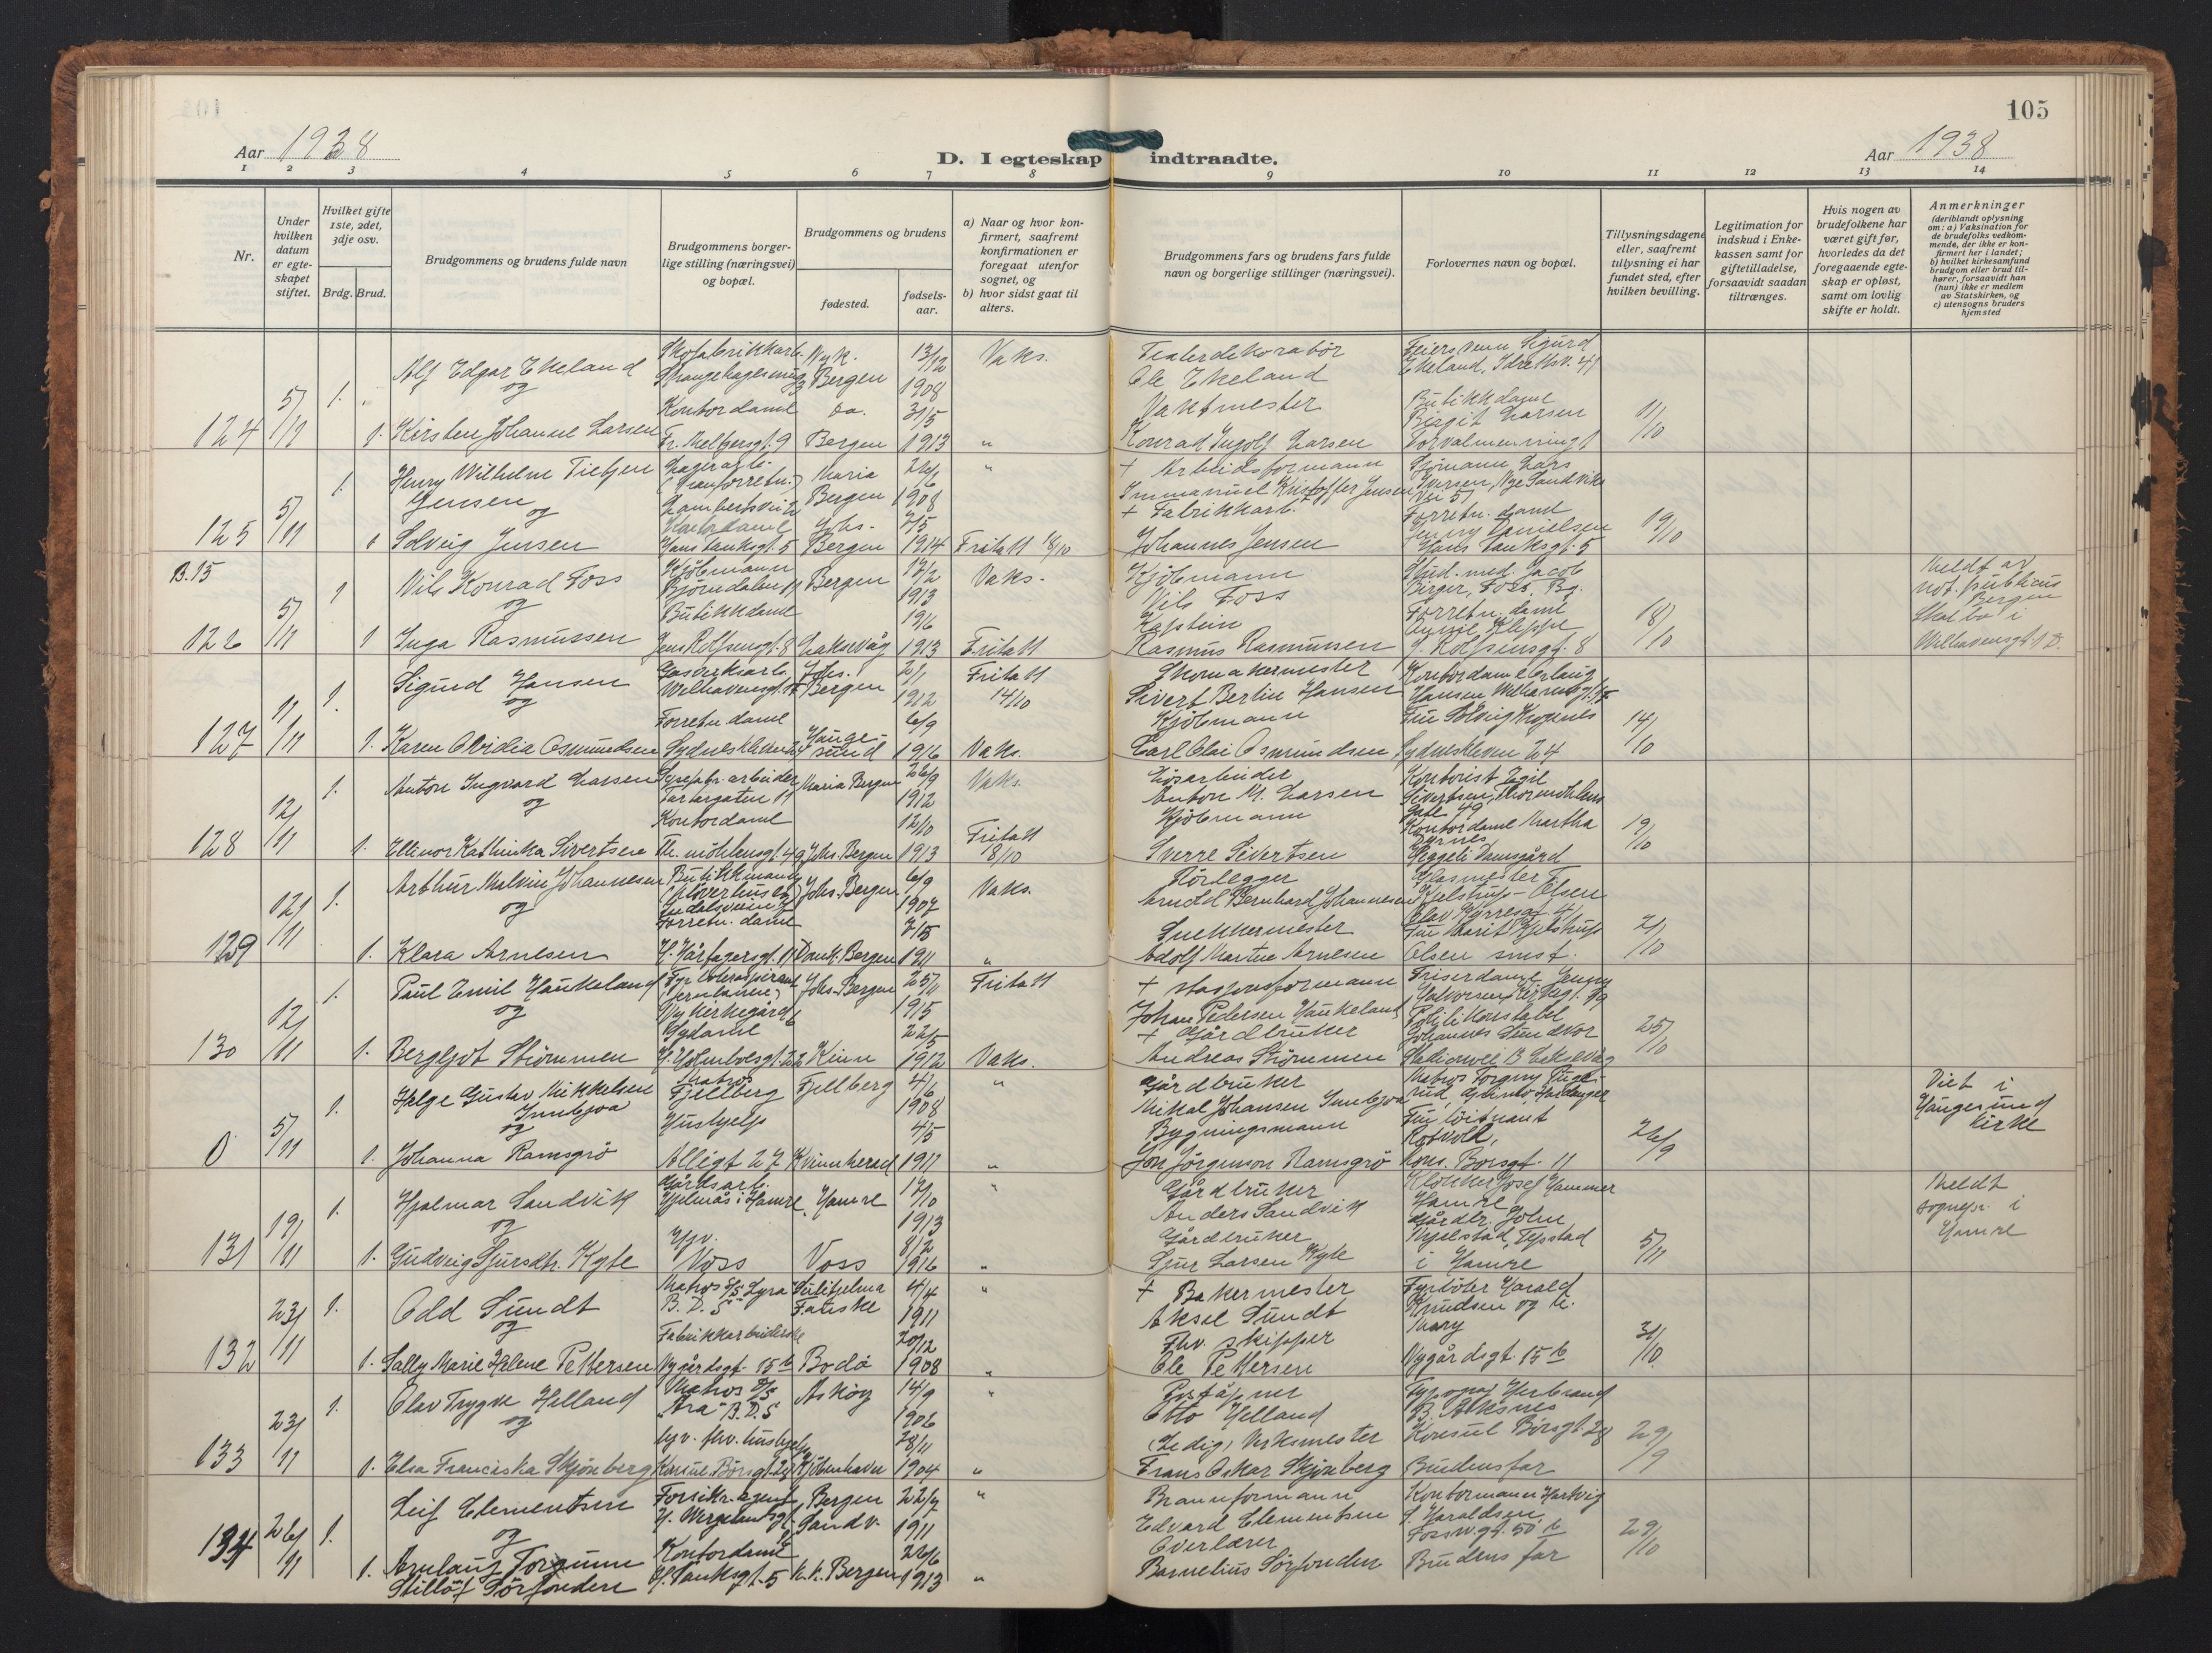 105
Aar 1938
D. I egteskap indtraadte.
Aar 1938
1 2 3 4 5 6 7 8 9 10 11 12 13 14
Nr.
Under hvilken datum er egteskapet stiftet.
Hvilket gifte 1ste, 2det, 3dje osv.
Brdg. Brud.
Brudgommens og brudens fulde navn
Brudgommens borgerlige stilling (næringsvei) og bopæl.
Brudgommens og brudens
fødested.
fødselsaar.
a) Naar og hvor konfirmert, saafremt konfirmationen er foregaat utenfor sognet, og
b) hvor sidst gaat til alters.
Brudgommens fars og brudens fars fulde navn og borgerlige stillinger (næringsvei).
Forlovernes navn og bopæl.
Tillysningsdagene eller, saafremt tillysning ei har fundet sted, efter hvilken bevilling.
Legitimation for indskud i Enkekassen samt for giftetilladelse, forsaavidt saadan tiltrænges.
Hvis nogen av brudefolkene har været gift før, hvorledes da det foregaaende egteskap er opløst, samt om lovlig skifte er holdt.
Anmerkninger
(deriblandt oplysning om: a) Vaksination for de brudefolks vedkommende, der ikke er konfirmert her i landet; b) hvilket kirkesamfund brudgom eller brud tilhører, forsaavidt han (hun) ikke er medlem av Statskirken, og c) utensogns bruders hjemsted
124 5/11 1. Alf Edgar Ekeland Skofabrikkarb. Nyk. Bergen 13/12 1908 Vaks. Teaterdekoratør Ole Ekeland Feiersvenn Sigurd Ekeland, Idrettsv. 41
og
1. Kirsten Johanne Larsen Kontordame Fr. Meltzersgt. 9 Do. Bergen 31/5 1913 " Vaktmester Konrad Ingolf Larsen Butikkdame Birgit Larsen Torvalmenningt 11/10
125 5/11 1. Henry Wilhelm Tietjen Jensen Lagerarb. Maria Bergen 26/6 1908 " + Arbeidsformann Immanuel Kristoffer Jensen Sjømann Lars Iversen, Nye Sandviks vei 57
og
1 Solveig Jensen Kontordame Hans Tanksgt. 5 Johs. Bergen 7/5 1914 Fritatt 18/10 + Fabrikkarb. Johannes Jensen Forretn. dame Jenny Danielsen Hans Tanksgt. 5 19/10
B. 15
126 5/11 1 Nils Konrad Foss Kjøbmann Bjørndalen 11 Bergen 17/2 1913 Vaks. Kjøbmann Nils Foss Stud. med. Jacob Birger Foss, Bg.
og
1 Inga Rasmussen Butikkdame Jens Rolfsensgt. 8 Laksevåg 19/6 1913 Fritatt Kaptein Rasmus Rasmussen Forretn. dame J. Rolfsensgt. 8 18/10
Meldt av not. publicus Bergen Skal bo i Welhavensgt. 1 D.
127 11/11 1. Sigurd Hansen Gasverksarb. Welhavensgt. Johs. Bergen 2/1 1912 Fritatt 14/10 Skomakermester Sivert Bertin Hansen Kontordame Hansen Welhavensgt.
og
1. Karen Ovidia Osmundsen Forretn. dame Sydneskleiven 24 Haugesund 6/9 1916 Vaks. Kjøbmann Carl Olai Osmundsen Fru Solveig Sydneskleiven 24 14/10
128 12/11 1. Anton Ingvard Larsen arbeider Tartargaten 11 Maria Bergen 26/9 1912 Vaks. Løsarbeider Anton M. Larsen Kontorist Egil Sivertsen, Thormøhlens gate 49
og
1. Ellinor Kathinka Sivertsen Kontordame Th. möhlensgt. 49 Johs. Bergen 12/10 1913 Fritatt 18/10 Kjøbmann Sverre Sivertsen Kontordame Martha Damsgård 19/10
129 12/11 1. Arthur Malvin Johannesen Butikkmann Johs. Bergen 6/9 1907 Vaks. Rørlegger Arndt Bernhard Johannesen Glasmester F. Kjelstrup-Olsen Olav Kyrresgt. 41
og
1. Klara Arnesen Forretn. dame H. Hårfagersgt. 11 Domk. Bergen 7/5 1911 " Snekkermester Adolf Martin Arnesen Fru Marit Kjelstrup Olsen smst. 21/10
130 12/11 1. Paul Emil Haukeland Johs. Bergen 25/11 1915 Fritatt + Stasjonsformann Johan Pedersen Haukeland Friserdame Jenny Halvorsen
og
1. Bergljot Strømmen Sydame Kinn 22/5 1912 Vaks. + Gårdbruker Andreas Strømmen Politikonstabel Johannes Sundvor 25/10
0 5/11 1. Helge Gustav Mikkelsen Innbjoa Matros Fjellberg Fjellberg 4/6 1908 " Gårdbruker Mikal Johansen Innbjoa Matros Torginy
og
1. Johanna Ramsgrø Hushjelp Alligt 27 Kvinnherad 4/5 1911 " Bygningsmann Jon Jørgenson Ramsgrø Fru løitnant Rotvold, Kons. Børsgt. 11 26/9
Viet i Haugesund kirke
131 19/11 1. Hjalmar Sandvik Gårdsarb. Hjelmås i Hamre Hamre 17/10 1913 " Gårdbruker Anders Sandvik Klokker Josef Hammer Hamre
og
1. Gudveig Sjursdtr. Kyte Hjv. Voss Voss 8/2 1916 " Gårdbruker Sjur Larsen Kyte Gårdbr. John i Hamre 5/11
Meldt sognepr. i Hamre
132 23/11 1. Odd Sundt Matros D/S Lyra B.D.S. Sulitjelma Fauske 4/4 1911 " + Bakermester Aksel Sundt Fyrbøter Harald Knudsen og
og
1. Sally Marie Helene Pettersen Fabrikkarbeiderske Nygårdsgt. 15 b Bodø 20/12 1908 " Fhv. skipper Ole Pettersen Mary Nygårdsgt. 15 b 31/10
133 23/11 1. Olav Trygve Helland Matros D/S "Ara" B.D.S Askøy 14/9 1906 " Poståpner Otto Helland Typograf Herbrand B. Alksnes Konsul Børsgt 28
og
1. Elsa Franciska Skjønberg fhv. hushjelp Konsul Børsgt. 28 Kjøbenhavn 28/11 1904 " (Ledig) Verksmester Frans Oskar Skjønberg Brudens far 29/9
134 26/11 1. Leif Clementsen Forsikr. agent H. Wergelandsgt. Bergen Sandv. 22/7 1911 " Brannformann Edvard Clementsen Kontormann Hartvig J. Haraldsen Fossw.gt. 50 b
og
1. Arnlaug Torgunn Stilløf Sørfonden Kontordame H. Tanksgt. 5 K.k. Bergen 26/6 1913 " Overlærer Barnelius Sørfonden Brudens far 29/10